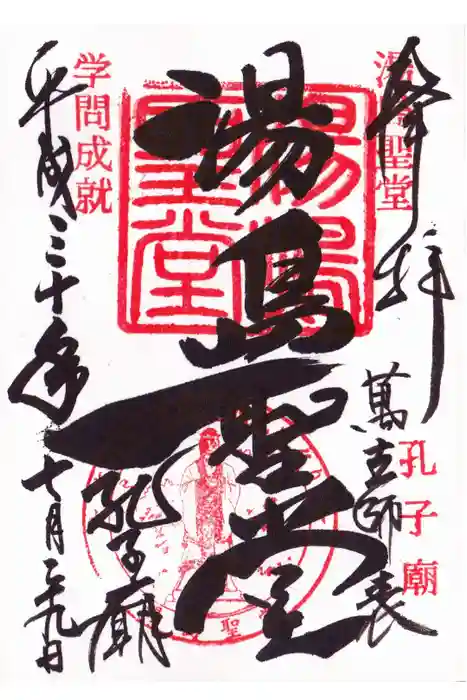 奉拝
湯島聖堂
萬古師表
孔子廟
湯島聖堂
湯島聖堂
孔子廟
学問成就
平成三十年七月二九日
聖